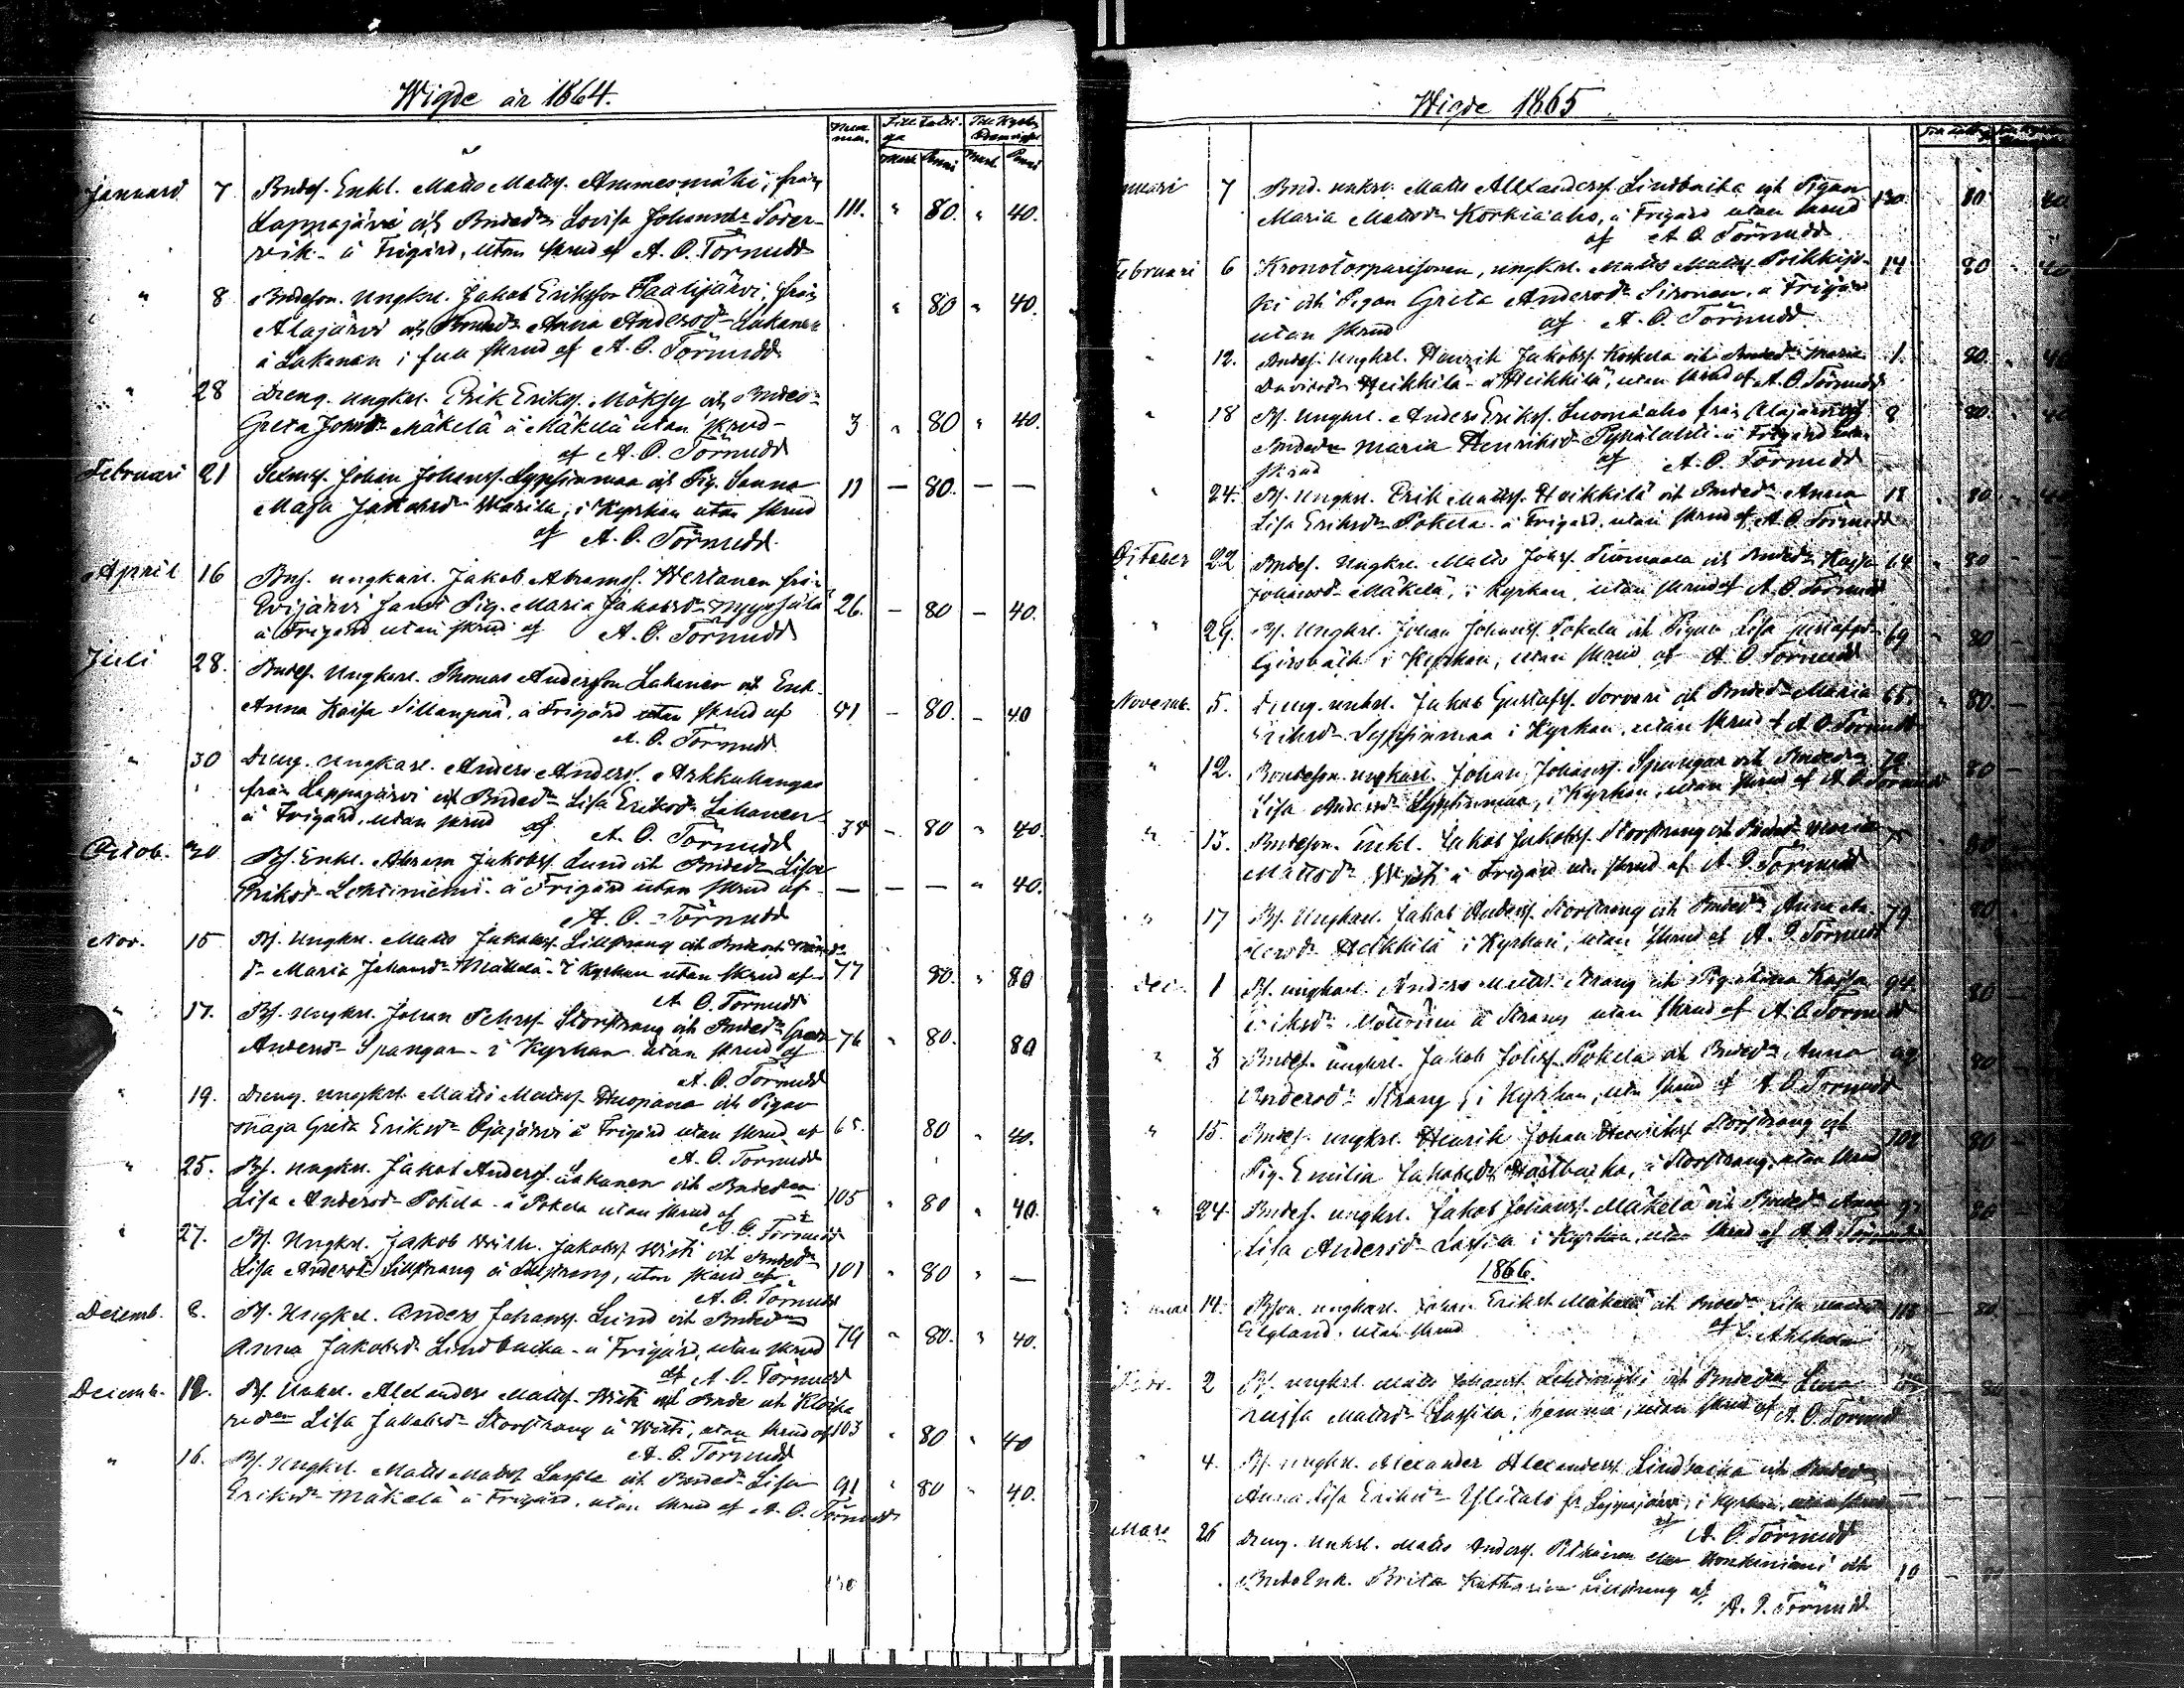 Wigde år 1864.
Num-
ma.
Till Fatti-
ga
Till Kyrk
Mark Penni Mark Penni
Januari 7 Bndes. Enkl. Matts Matts. Ammesmäki, från
Lappajärvi och Bndedr Lovisa Johansdr Söder-
vik - å Frigård, utan skrud af A. O. Törnudd 111. " 80. " 40.
" 8 Bndeson. Ungkrl. Jakob Eriksson Paalijärvi, från
Alajärvi och Bndedr Anna Andersdr Lakanen " 80 " 40.
å Lakanen i full skrud af A. O. Törnudd
" 28 Dreng. Ungkrl. Erik Eriks. Möksy och Bndedr
Greta Johsdr Mäkelä å Mäkelä utan skrud - 3 " 80 " 40.
af A. O. Törnudd
Februari 21 Johan Johanss. Lyppinmaa och Pig. Sanna
Maja Jakobsdr Warila, i Kyrkan utan skrud 11 — 80. — —
af A. O. Törnudd.
April 16 Bns. ungkarl. Jakob Abrams. Wertanen från
Evijärvi samt Pig. Maria Jakobsdr Nyyssälä 26. — 80 — 40.
å Frigård utan skrud af A. O. Törnudd
Juli 28. Bndes. Ungkarl. Thomas Andersson Lakanen och Enk.
Anna Kaisa Sillanpää, å Frigård utan skrud af 41 — 80. — 40
A. O. Törnudd
" 30 Dreng. Ungkarl. Anders Anders. Arkkukangas
från Lappajärvi och Bndedr Lisa Eriksdr Lakanen
å Frigård, utan skrud af A. O. Törnudd 38 — 80 " 40.
Octob. 30 Bs. Enkl. Abram Jakobss. Lund och Bndedr Lisa
Eriksdr Lehtiniemi å Frigård utan skrud af — — — " 40.
A. O. Törnudd
Nov. 15 Bs. Ungkrl. Matts Jakobss. Lillstrang och
dr Maria Johansdr Mäkelä - i Kyrkan utan skrud af 77 80. " 80
A. O. Törnudd
" 17. Bs. Ungkrl. Johan Pehrss. Storstrang och Bndedr Greta
Andersdr Spangar - i Kyrkan utan skrud af 76 " 80. 80
A. O. Törnudd
" 19. Dreng. Ungkrl. Matts Matts. Huopana och Pigan
Maja Greta Eriksdr Ojajärvi å Frigård utan skrud af 65. 80 " 40.
A. O. Törnudd
" 25. Bs. Ungkrl. Jakob Anderss. Lakanen och Bndedr
Lisa Andersdr Pokela - å Pokela utan skrud af 105 " 80 " 40.
A. O. Törnudd
" 27. Bs. Ungkrl. Jakob Wilh. Jakobss. Wisti och Bndedr
Lisa Andersdr Lillstrang å Lillstrang, utan skrud af 101 " 80 " —
A. O. Törnudd
Decemb. 8. Bs. Ungkrl. Anders Johanss. Lund och Bndedr
Anna Jakobsdr Lindbacka - å Frigård, utan skrud 79 " 80. " 40.
af A. O. Törnudd
Decemb. 12. Bs. Unkrl. Alexanders Matts. Wisti och Bnde och
Lisa Jakobsdr Storstrang å Wisti, utan skrud af 103 " 80 " 40
A. O. Törnudd
" 16. Bs. Ungkrl. Matts Matts. Lassila och Bndedr Lisa
Eriksdr Mäkelä å Frigård, utan skrud af A. O. Törnudd 91 " 80 " 40.
Wigde 1865
7 Bnd. unkrl. Matts Alexanders. Lindbacka och Pigan
Maria Mattsdr Korkiaaho, å Frigård utan skrud 130. 80. 40
af A. O. Törnudd
Februari 6 Kronotorparesonen, ungkrl. Matts Matts. Poikkijo- 14 80 40
ki och Pigan Greta Andersdr Sironen, å Frigård
utan skrud af A. O. Törnudd
" 12. Bndes. Ungkrl. Henrik Jakobs. Koskela och Bndedr Maria 1. 80. 40
Davidsdr Heikkilä - å Heikkilä, utan skrud af A. O. Törnudd
" 18 Bs. Ungkrl. Anders Eriks. Luomaaho från Alajärvi och 8 80. 40
Bndedr Maria Henriksdr Pyhälahti å Frigård utan
skrud af A. O. Törnudd
" 24. Bs. Ungkrl. Erik Matts. Heikkilä och Bndedr Anna 18 80.
Lisa Eriksdr Pokela - å Frigård, utan skrud af A. O. Törnudd
October 22 Bndes. Ungkrl. Matts Johss. Timmola och Bndedr Kajsa 64 80 —
Johansdr Mäkelä, i Kyrkan, utan skrud af A. O. Törnudd
" 29. Bs. Ungkrl. Johan Johanss. Pokela och Pigan Lisa Gustafsdr 69 " 80 —
i Kyrkan, utan skrud af A. O. Törnudd
Novemb. 5. Dreng. unkrl. Jakob Gustafs. Sorvari och Bndedr Maria 65. " 80. —
Eriksdr Lyppinmaa i Kyrkan, utan skrud af A. O. Törnudd
" 12. Bondeson. ungkarl. Johan Johanss. Spangar och Bndedr 72 80 —
Lisa Andersdr Lyppinmaa, i Kyrkan, utan skrud af A. O. Törnudd
" 13. Bndeson. Enkl. Jakob Jakobss. Storstrang och Bndedr Maria 75 80
Mattsdr Wisti å Frigård utan skrud af A. O. Törnudd
" 17 Bs. Ungkrl. Jakob Anderss. Storstrang och Bndedr Anna An- 79 80
dersdr Heikkilä i Kyrkan, utan skrud af A. O. Törnudd
Dec. 1 Bs. ungkarl. Anders Matts. Strang och Pig. Anna Kajsa 94. 80 —
Eriksdr Möttönen å Strang utan skrud af A. O. Törnudd
" 3 Bndes. ungkrl. Jakob Johss. Pokela och Bndedr Anna 80 —
Andersdr Strang i Kyrkan, utan skrud af A. O. Törnudd
" 15. Bndes. ungkrl. Henrik Johan Henriks. Storstrang och 102 80 —
Pig. Emilia Jakobsdr Hästbacka, å Storstrang, utan skrud
" 24. Bndes. ungkrl. Jakob Johanss. Mäkelä och Bndedr Anna 97 80 —
Lisa Andersdr Lassila i Kyrkan, utan skrud af A. O. Törnudd
1866.
14. Bson. ungkarl. Johan Erikss. Mäkelä och Bndedr Lisa 118 — 80.
utan skrud af
Febr. 2 Bs. ungkrl. Matts Johanss. och Bndedr Lisa — 80
Kajsa Mattsdr Lassila, hemma, utan skrud af A. O. Törnudd
" 4. Bs. ungkrl. Alexander Alexanders. Lindbacka och Bndedr
Anna Lisa Eriksdr Ylitalo fr. Lappajärvi, i Kyrkan, utan skrud — —
af A. O. Törnudd
Mars 26 Dreng. Unkrl. Matts Anders. och 10 —
Bnde Enk. Brita Katharina Lillstrang af
A. O. Törnudd